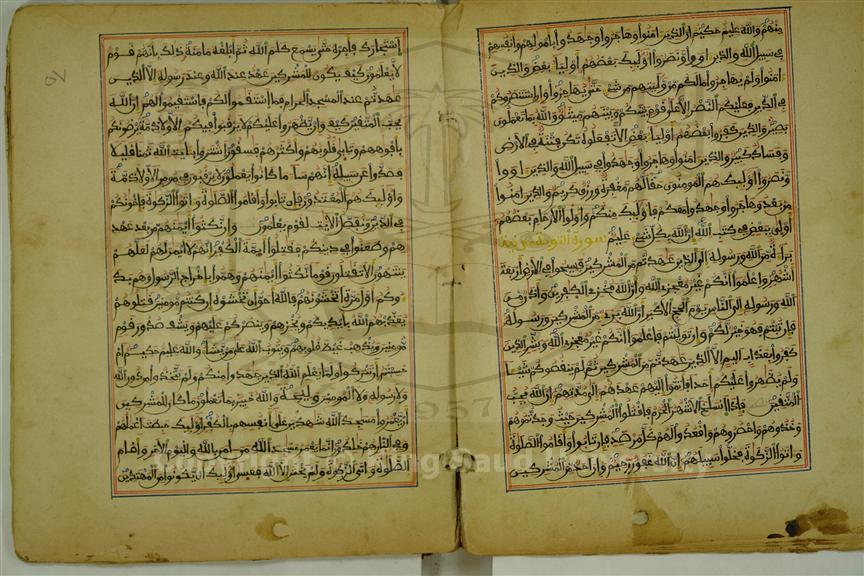 منهم والله عليم حكيم إن الذين امنوا وهاجروا وجهدوا بأموالهم وأنفسهم
في سبيل الله والذين اووا ونصروا أوليك بعضهم أوليا بعض والذين
امنوا ولم يهاجروا مالكم من وليتهم من شيء حتى يهاجروا وإن استنصروكم
في الدين فعليكم النصر إلا على قوم بينكم وبينهم ميثق والله بما تعملون
بصير والذين كفروا بعضهم أوليا بعض إلا تفعلوه تكن فتنة في الأرض
وفساد كبير والذين امنوا وهاجروا وجهدوا في سبيل الله والذين اووا
ونصروا أوليك هم المومنون حقا لهم مغفرة ورزق كريم والذين امنوا
من بعد وهاجروا وجهدوا معكم فأوليك منكم وأولوا الأرحام بعضهم
أولى ببعض في كتب الله إن الله بكل شيء عليم سورة التوبة مدنية
براة من الله ورسوله إلى الذين عهدتم من المشركين فسيحوا في الأرض أربعة
أشهر واعلموا أنكم غير معجزي الله وأن الله مخزي الكفرين وأذن من
الله ورسوله إلى الناس يوم الحج الأكبر أن الله بريء من المشركين ورسوله
فإن تبتم فهو خير لكم وإن توليتم فاعلموا أنكم غير معجزي الله وبشر الذين
كفروا بعذاب اليم إلا الذين عهدتم من المشركين ثم لم ينقصوكم شيئا
ولم يظهروا عليكم أحدا فأتموا إليهم عهدهم إلى مدتهم إن الله يحب
المتقين فإذا انسلخ الأشهر الحرم فاقتلوا المشركين حيث وجدتموهم
وخذوهم واحصروهم واقعدوا لهم كل مرصد فإن تابوا وأقاموا الصلوة
واتوا الزكوة فخلوا سبيلهم إن الله غفور رحيم وإن أحد من المشركين
استجارك فأجره حتى يسمع كلم الله ثم أبلغه مامنه ذلك بأنهم قوم
لا يعلمون كيف يكون للمشركين عهد عند الله وعند رسوله إلا الذين
عهدتم عند المسجد الحرام فما استقموا لكم فاستقيموا لهم إن الله
يحب المتقين كيف وإن يظهروا عليكم لا يرقبوا فيكم إلا ولا ذمة يرضونكم
بأفوههم وتأبى قلوبهم وأكثرهم فسقون اشتروا بايت الله ثمنا قليلا
فصدوا عن سبيله إنهم سا ما كانوا يعملون لا يرقبون في مومن إلا ولا ذمة
وأوليك هم المعتدون فإن تابوا وأقاموا الصلوة واتوا الزكوة فإخونكم
في الدين ونفصل الايت لقوم يعلمون وإن نكثوا أيمنهم من بعد عهد
هم وطعنوا في دينكم فقتلوا أيمة الكفر إنهم لا أيمن لهم لعلهم
ينتهون ألا تقتلون قوما نكثوا أيمنهم وهموا بإخراج الرسول وهم بد
وكم أول مرة أتخشونهم فالله أحق أن تخشوه إن كنتم مومنين قتلوهم
يعذبهم الله بأيديكم ويخزهم وينصركم عليهم ويشف صدور قوم
مومنين ويذهب غيظ قلوبهم ويتوب الله على من يشا والله عليم حكيم أم
حسبتم أن تتركوا ولما يعلم الله الذين جهدوا منكم ولم يتخذوا من دون الله
ولا رسوله ولا المومنين وليجة والله خبير بما تعملون ما كان للمشركين
أن يعمروا مسجد الله شهدين على أنفسهم بالكفر أوليك حبطت أعملهم
وفي النار هم خلدون إنما يعمر مسجد الله من امن بالله واليوم الآخر وأقام
الصلوة واتى الزكوة ولم يخش إلا الله فعسى أوليك أن يكونوا من المهتدين
1957